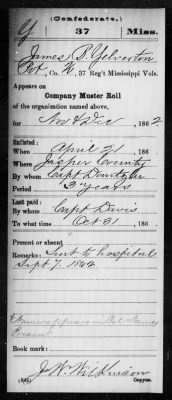 (Confederate.)
Y 37 Miss.
James B. Yelverton
Pvt., Co. K, 37 Reg't Mississippi Vols.
Appears on
Company Muster Roll
of the organization named above,
for Nov & Dec, 1862
Enlisted:
When April 21, 186
Where Jasper County
By whom Capt
Period 3 years
Last paid:
By whom Capt Davis
To what time Oct 31, 186
Present or absent
Remarks: Sent to hospital
Sept 7, 1862
Name appears on
Present
Book mark:
J. W. Wilkinson
(642) Copyist.